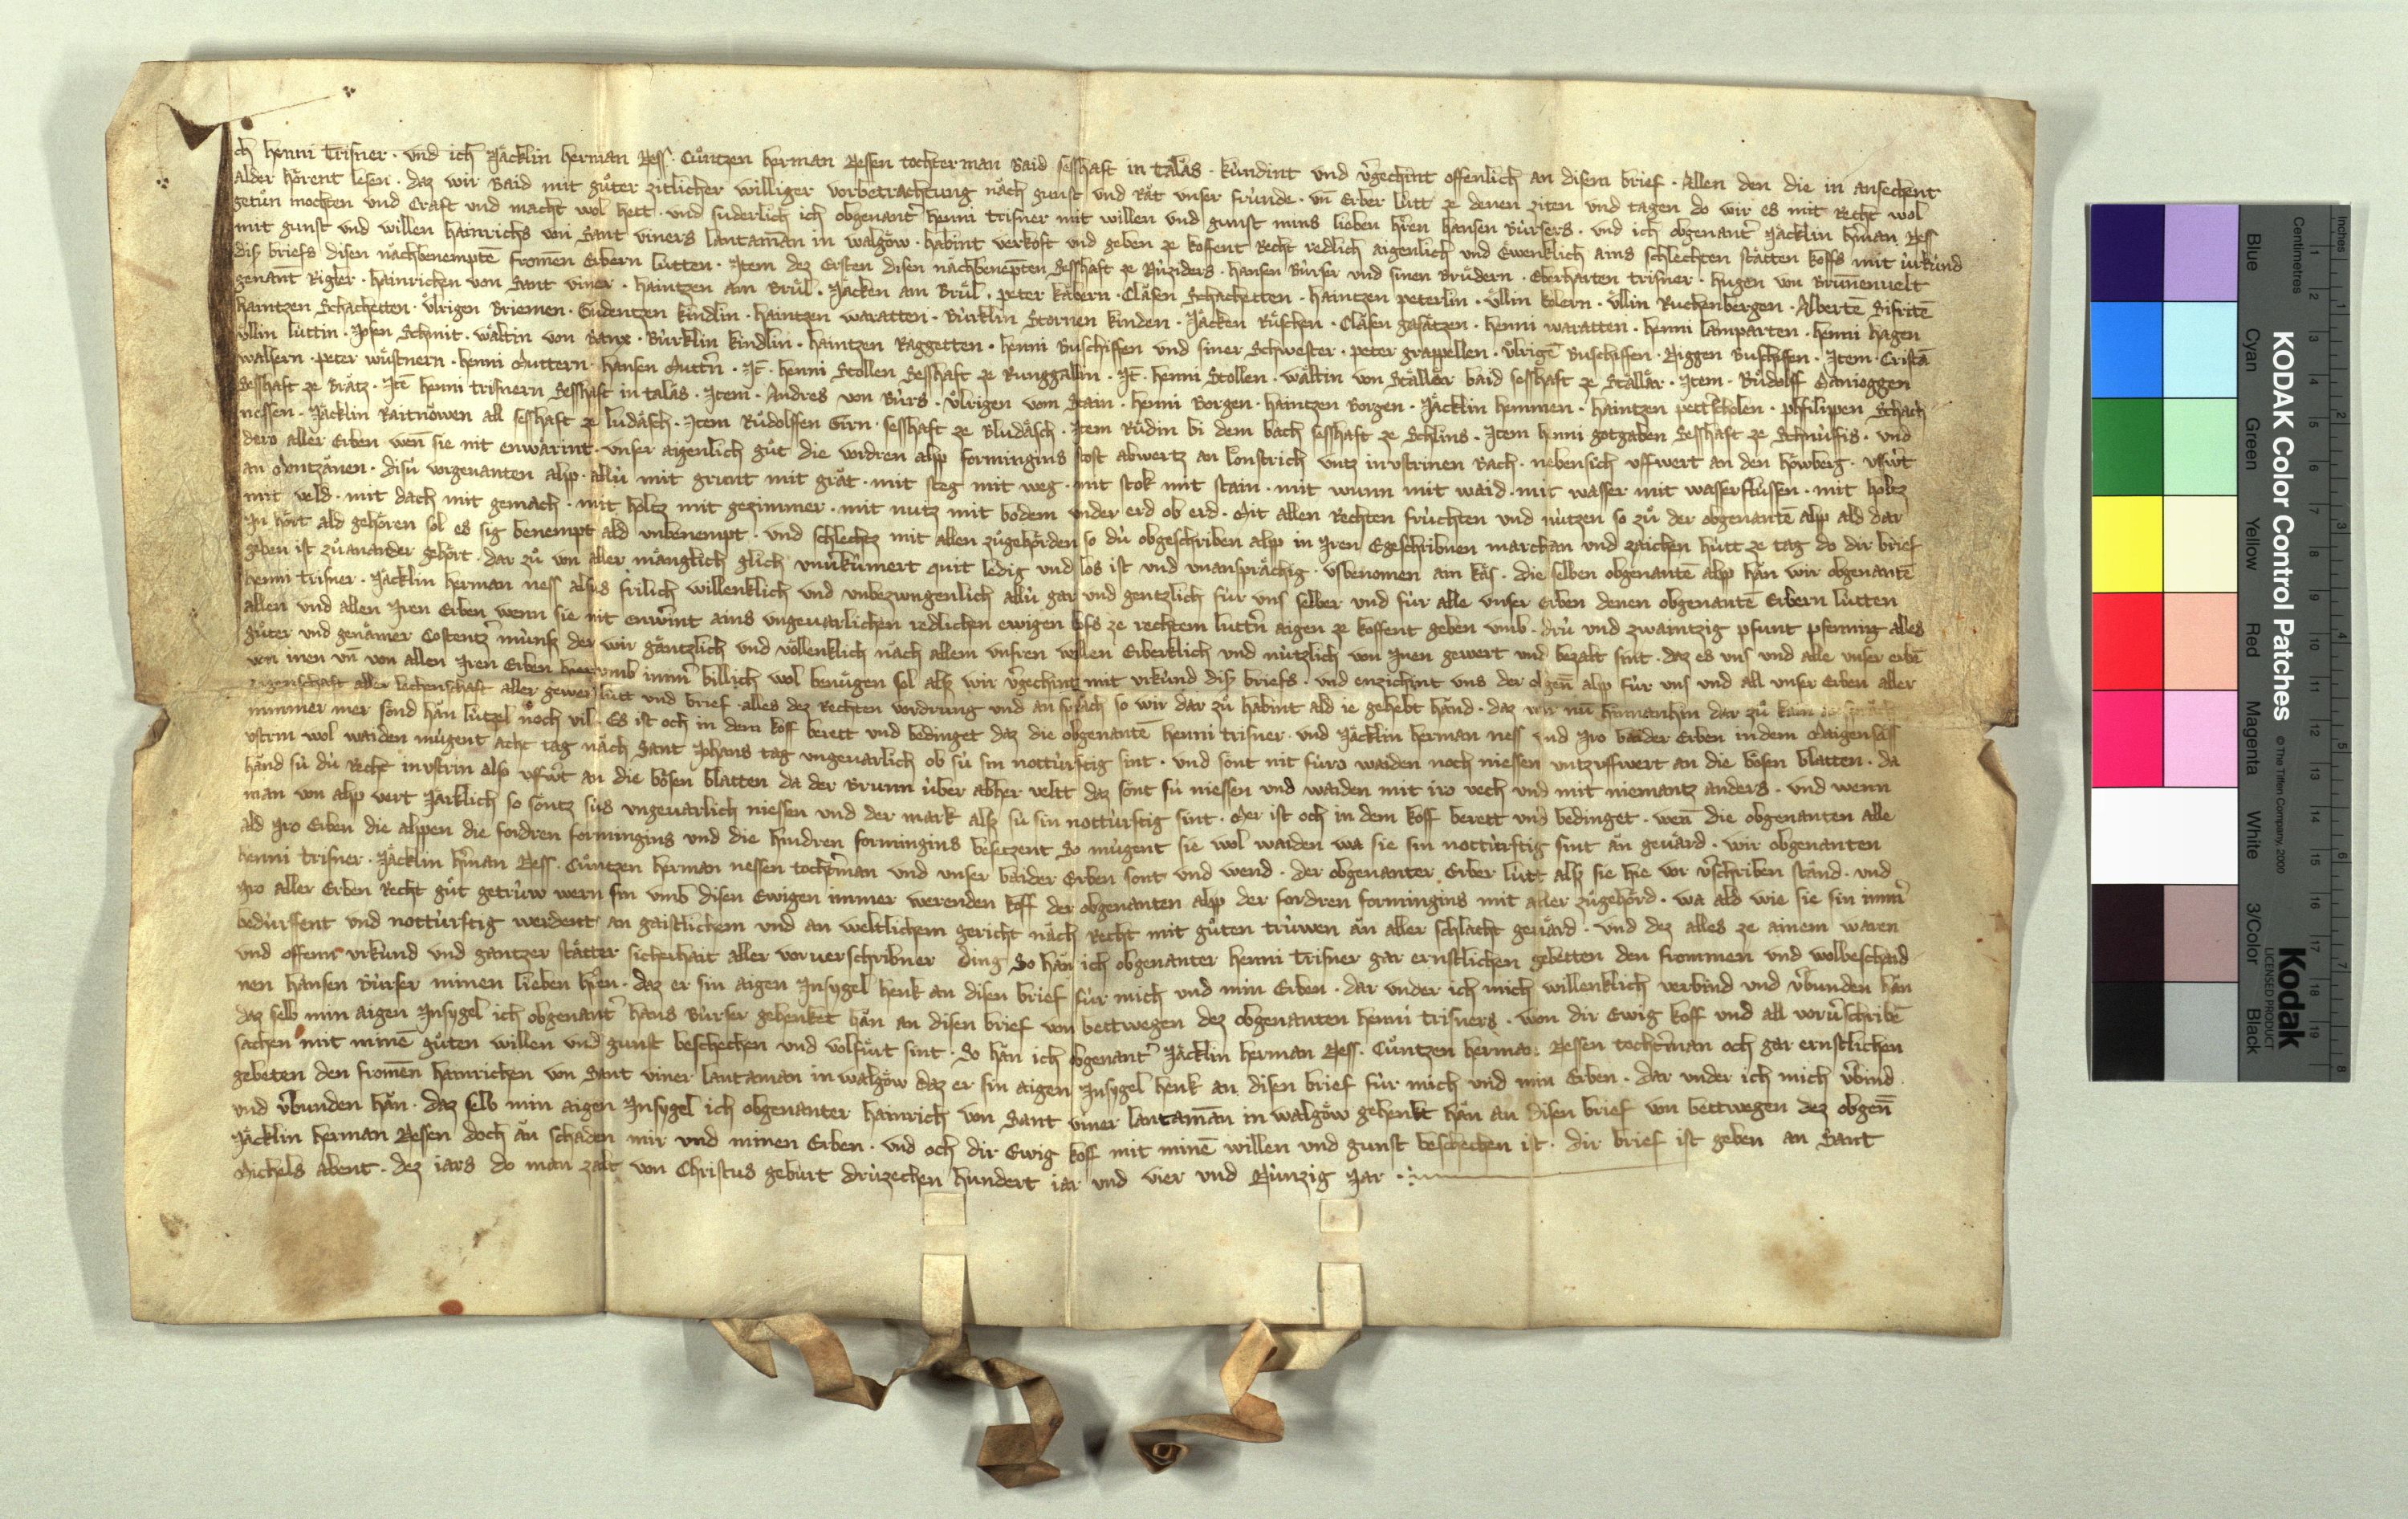 Ich henni Trisner · vnd ich Jäcklin herman Ness · Cůntzen herman Nessen tochterman Baid sesshaft in taläs · kündint vnd v̄gechint offenlich an disem brief · Allen den die in ansechent
alder hörent lesen · daz wir Baid mit gůter zitlicher williger vorbetrachtung näch gunst vnd Rät vnser fründe · vn̄ Erber lütt ze denen ziten vnd tagen do wir es mit Recht wol
getůn mochten vnd Craft vnd macht wol hett · vnd suderlich ich obgenant̄ henni trisner mit willen vnd gunst mins lieben h̄ren hansen Bürsers · vnd ich obgenant̄ Jäcklin h̄man Ness
mit gunst vnd willen hainrichs von Sant viners lantam̄an in walgöw · habint verkoft vnd geben ze koffent Recht redlich aigenlich vnd Ewenklich ains schlechten stätten koffs mit ürkünd
diß briefs disen nächbenemptē fromen Erbern lütten · Item dez Ersten disen nächbenēpten Sesshaft ze Nüziders · hansen Bürser vnd sinen Brüdern · Eberharten trisner · hugen von Brun̄enuelt
genant Rigler · hainrichen von Sant viner · haintzen am Brül · Jäcken am Brül · peter käbern · Cläsen Schachetten · haintzen peterlin · üllin kolern · üllin Ruchenbergen · Albertē Sifritē
haintzen Schachetten · ůlrigen Briemen · Gudentzen kindlin · haintzen waratten · Bürklin Stornen kinden · Jäcken Rüschen · Cläsen gasätzen · henni waratten · henni lamparten · henni hagen
üllin lüttin · Josen Schmit · wältin von Banx · Bürklin kindlin · haintzen Raggetten · henni Buschissen vnd siner Schwester · peter grappellen · ůlrigē Buschissen · Riggen Buschissen · Item · Cristā
walsern · peter wůstnern · henni Muttern · hansen Mutt̄n · It̄ · henni Stollen Sesshaft ze Runggällin · It̄ · henni Stollen · wältin von Ställär baid sesshaft ze Ställär · Item · Růdolff Manioggen
Sesshaft ze Brätz · Itē henni trisnern Sesshaft in taläs · Item · Andres von Bürs · ůlrigen vom Stain · henni Borgen · haintzen Borgen · Jäcklin hemmen · haintzen pett̄kholen · philippen Schach
nessen · Jäcklin Raitnowen all sesshaft ze ludäsch · Item Růdolffen Girn · sesshaft ze Bludäsch · Item Růdin bi dem bach sesshaft ze Schlins · Item henni gotgaben Sesshaft ze Schnüfis · vnd
dero aller Erben wen̄ sie nit enwärint · vnser aigenlich gůt die vordren alp formingins stost abwertz an lonstrich vntz in vstrinen Bach · nebensich vffwert an den höwberg · vffw̄t
an Montzänen · disü vorgenanten alp · allü mit grunt mit grät · mit steg mit weg · mit stok mit stain · mit wunn mit waid · mit wasser mit wasserflüssen · mit holtz
mit veld · mit dach mit gemach · mit holtz mit gezimmer · mit nutz mit bodem vnder erd ob erd · Mit allen Rechten früchten vnd nützen so zů der obgenantē alp ald dar
In hört ald gehören sol es sig benempt ald vnbenempt · vnd schlechtz mit allen zůgehörden so dü obgeschriben alp in Iren Egeschribnen marchan vnd zaichen hütt ze tag do dir brief
geben ist zůanander gehört · dar zů von aller mänglich glich vnu̅kümert quit ledig vnd los ist vnd vnansprächig · vsbenomen ain käs · die selben obgenantē alp hän wir obgenantē
henni trisner · Jäcklin herman ness alsus frilich willenklich vnd vnbezwngenlich allü gar vnd gentzlich für vns selber vnd für alle vnser Erben denen obgenantē Erbern lütten
allen vnd allen Iren Erben wenn sie nit enw̄int ains vngeuarlichen redlichen ewigen kofs ze rechtem lutt̄n aigen ze koffent geben vmb · drü vnd zwaintzig pfunt pfenning alles
gůter vnd genämer Costentz̄ münss der wir gäntzlich vnd völlenklich näch allem vnsren willen Erberklich vnd nützlich von Inen gewert vnd bezalt sint · daz es vns vnd alle vnser erbē
von inen vn̄ von allen Iren Erben hier vmb im̄er billich wol benügen sol als wir v̄gechint mit vrkünd diß briefs · vnd enzichint vns der obgen̄ alp für vns vnd all vnser Erben aller
aigenschaft aller lechenschaft aller gewer lütt vnd brief · alles dez Rechten vordrung vnd an spräch so wir dar zů habint ald ie gehebt händ · daz wir nu hinnanhin dar zů kain an spräch
nimmer mer sönd hän lützel noch vil · Es ist och in dem koff berett vnd bedinget daz die obgenantē henni trisner · vnd Jäcklin herman ness vnd Iro baider Erben in dem Maigensäss
vstrin wol waiden mügent acht tag näch Sant Johans tag vngeuarlich ob sü sin nottürftig sint · vnd sönt nit füro waiden noch niessen vntz vffwert an die bösen blatten · da
händ sü dü Recht in vstrin alp vffw̄t an die bösen blatten da der Brunn über abher veltt daz sönt sü niessen vnd waiden mit iro vech vnd mit niemantz anders · vnd wenn
man von alp vert Järklich so söntz süs vngeuarlich niessen vnd der mark als sü sin nottürftig sint · Mer ist och in dem koff berett vnd bedinget · wen̄ die obgenanten alle
ald Iro Erben die alppen die fordren formingins vnd die hindren formingins besetzent So mügent sie wol waiden wa sie sin nottürftig sint än geuärd · wir obgenanten
henni trisner · Jäcklin h̄man Ness · Cůntzen herman nessen tocht̄man vnd vnser baider Erben sont vnd wend · der obgenanter Erber lütt als sie hie vor v̄schriben ständ · vnd
Iro aller Erben Recht gůt getrüw wern sin vmb disen Ewigen immer werenden koff der obgenanten alp der fordren formingins mit aller zůgehörd · wa ald wie sie sin im̄er
bedürffent vnd nottürftig werdent an gaistlichem vnd an weltlichem gericht näch Recht mit gůten trüwen än aller schlacht geuärd · vnd dez alles ze ainem waren
vnd offenn vrkund vnd gantzer stätter sicherhait aller voruerschribner ding So hän ich obgenanter henni trisner gar ernstlichen gebetten den frommen vnd wolbeschaid
nen hansen Bürser minen lieben h̄en · daz er sin aigen Insygel henk an disen brief für mich vnd min Erben · dar vnder ich mich willenklich verbind vnd v̄bunden hän
daz selb min aigen Insygel ich obgenant̄ hans Bürser gehenket hän an disen brief von bettwegen dez obgenanten henni trisners · won dir Ewig koff vnd all voru̅schribē
sachen mit minē gůten willen vnd gunst beschechen vnd volfürt sint · So hän ich obgenant̄ Jäcklin herman Ness · Cůntzen herman Nessen tocht̄man och gar ernstlichen
gebeten den from̄en hainrichen von Sant viner lantaman in walgöw daz er sin aigen Insygel henk an disen brief für mich vnd min Erben · dar vnder ich mich v̄bind
vnd v̄bunden hän · daz selb min aigen Insygel ich obgenanter hainrich von Sant viner lantam̄an in walgöw gehenkt hän an disen brief von bettwegen dez obgen̄
Jäcklin herman Nessen doch än schaden mir vnd minen Erben · vnd och dir Ewig koff mit minē willen vnd gunst beschechen ist · dir brief ist geben an Sant
Michels abent · dez iars do man zalt von Christus geburt drüzechen hundert iar vnd vier vnd Nünzig Jar ·
KODAK Color Control Patches © The Tiffen Company, 2000
Kodak
LICENSED PRODUCT
Blue Cyan Green Yellow Red Magenta White 3/Color Black
Centimetres 1 2 3 4 5 6 7 8 9 10 11 12 13 14 15 16 17 18 19
Inches 1 2 3 4 5 6 7 8